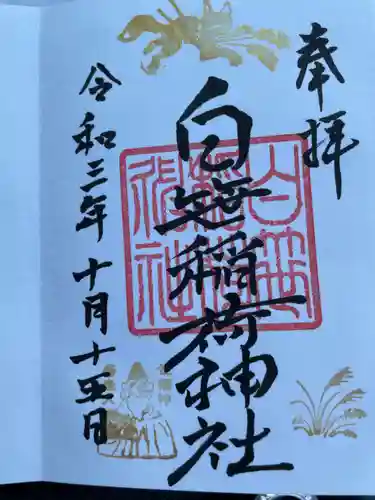 奉拝
白笹稲荷神社
令和三年十月十五日